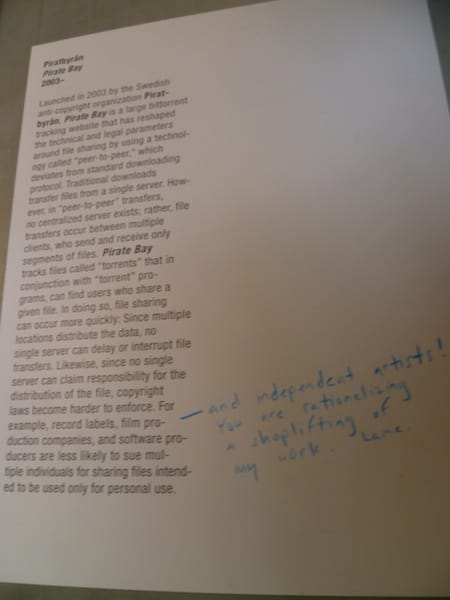 Piratbyrån
Pirate Bay
2003–
Launched in 2003 by the Swedish
anti-copyright organization Pirat-
byrån, Pirate Bay is a large bittorrent
tracking website that has reshaped
the technical and legal parameters
around file sharing by using a technol-
ogy called “peer-to-peer,” which
deviates from standard downloading
protocol. Traditional downloads
transfer files from a single server. How-
ever, in “peer-to-peer” transfers,
no centralized server exists; rather, file
transfers occur between multiple
clients, who send and receive only
segments of files. Pirate Bay
tracks files called “torrents” that in
conjunction with “torrent” pro-
grams, can find users who share a
given file. In doing so, file sharing
can occur more quickly: Since multiple
locations distribute the data, no
single server can delay or interrupt file
transfers. Likewise, since no single
server can claim responsibility for the
distribution of the file, copyright
laws become harder to enforce. For
example, record labels, film pro-
duction companies, and software pro-
ducers are less likely to sue mul-
tiple individuals for sharing files intend-
ed to be used only for personal use.
– and independent artists!
You are rationalizing
a shoplifting of
my work. Lame.